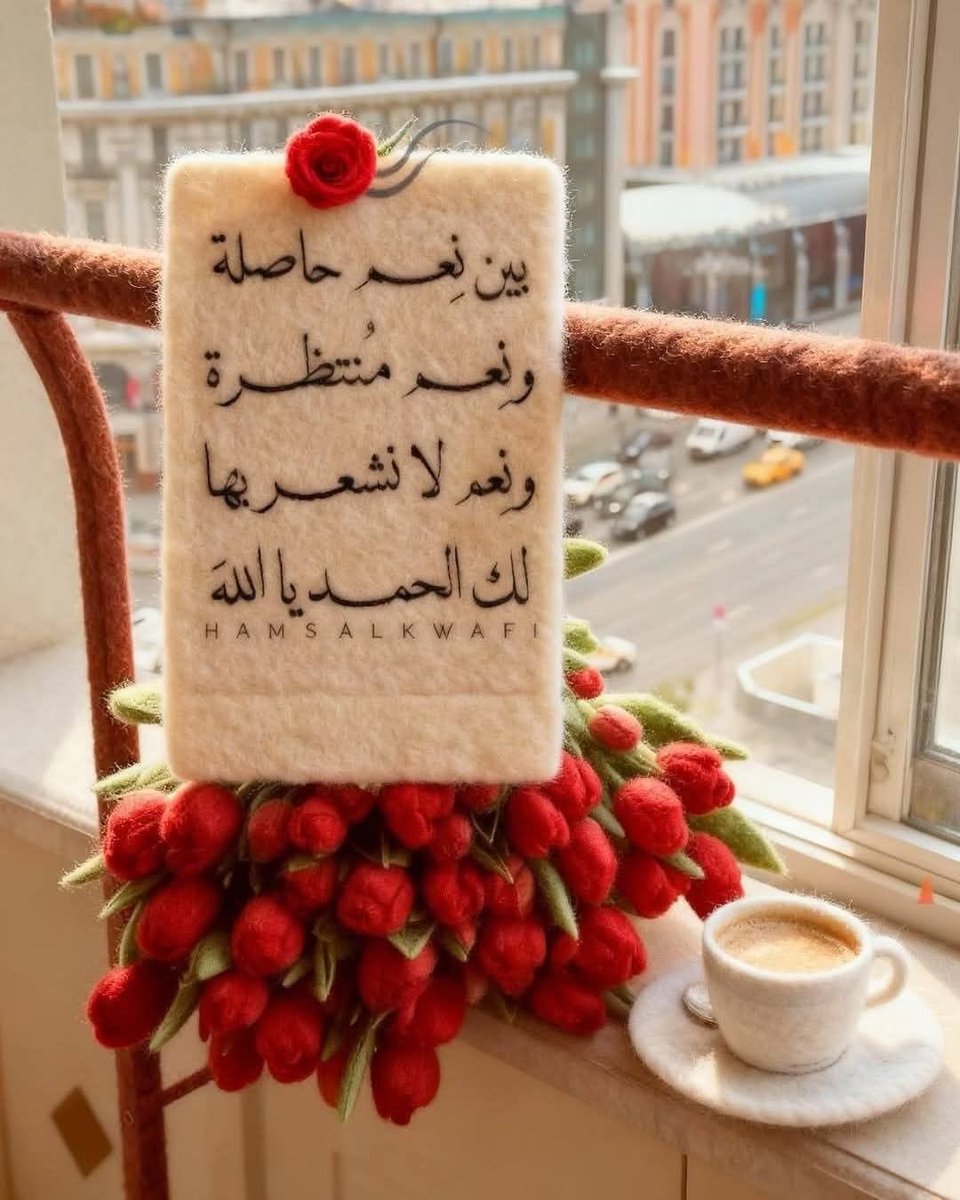 بين نِعم حاصلة
ونِعم مُنتظرة
ونِعم لا نشعر بها
لك الحمد يا اللهَ
HAMSALKWAFI